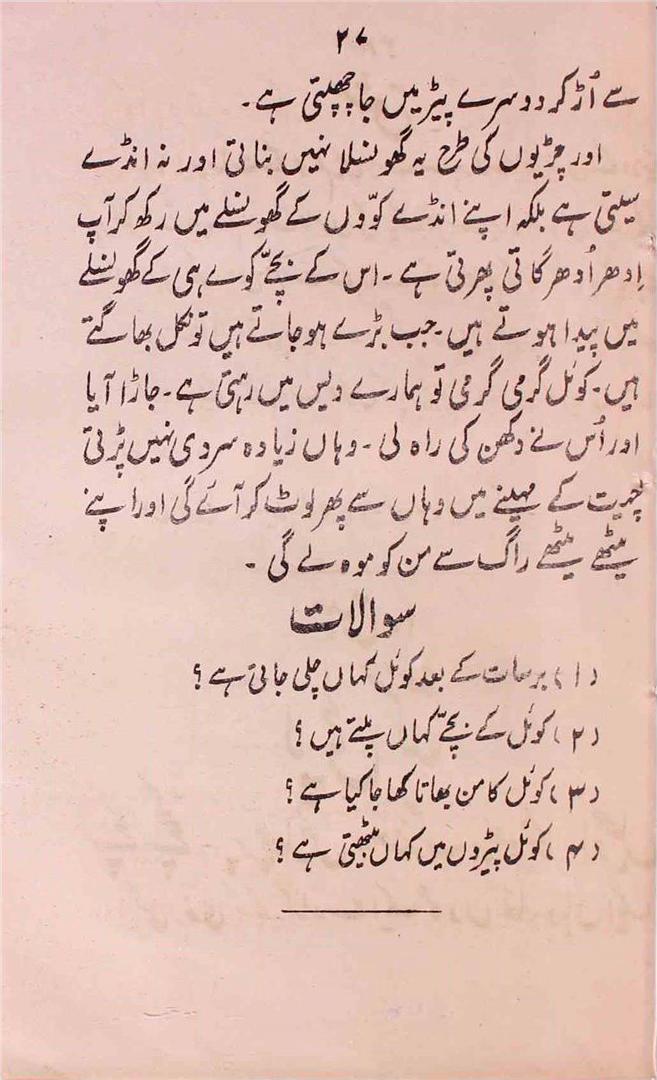 ۲۷
سے اُڑ کر دوسرے پیڑ میں جا چھپتی ہے۔
اور چڑیوں کی طرح یہ گھونسلا نہیں بناتی اور نہ انڈے
سیتی ہے بلکہ اپنے انڈے کوّوں کے گھونسلے میں رکھ کر آپ
اِدھر اُدھر گاتی پھرتی ہے۔ اس کے بچّے کوے ہی کے گھونسلے
میں پیدا ہوتے ہیں۔ جب بڑے ہو جاتے ہیں تو نکل بھاگتے
ہیں۔ کوئل گرمی گرمی تو ہمارے دیس میں رہتی ہے۔ جاڑا آیا
اور اُس نے دکھن کی راہ لی۔ وہاں زیادہ سردی نہیں پڑتی
چیت کے مہینے میں وہاں سے پھر لوٹ کر آئے گی اور اپنے
میٹھے میٹھے راگ سے من کو موہ لے گی۔
سوالات
(۱) برسات کے بعد کوئل کہاں چلی جاتی ہے؟
(۲) کوئل کے بچّے کہاں پلتے ہیں؟
(۳) کوئل کا من بھاتا کھاجا کیا ہے؟
(۴) کوئل پیڑوں میں کہاں بیٹھتی ہے؟